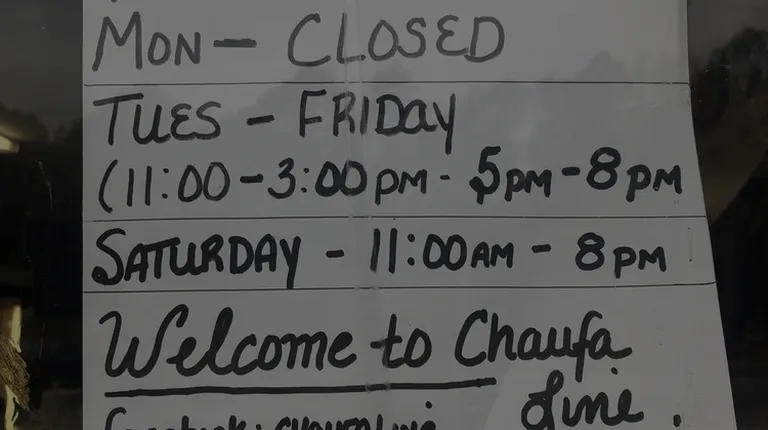 MON - CLOSED
TUES - FRIDAY
(11:00 - 3:00 PM - 5PM - 8PM
SATURDAY - 11:00 AM - 8 PM
Welcome to Chaufa